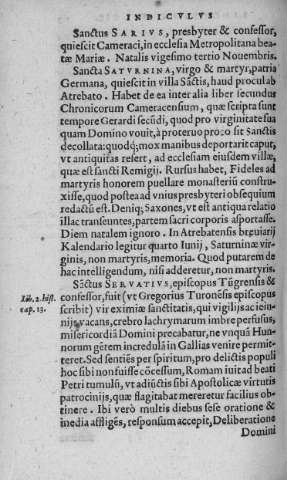 INDICVLVS
Sanctus SARIVS, presbyter & confessor,
quiescit Cameraci, in ecclesia Metropolitana bea-
tæ Mariæ. Natalis vigesimo tertio Nouembris.
Sancta SATVRNINA, virgo & martyr, patria
Germana, quiescit in villa Sāctis, haud procul ab
Atrebato. Habet de ea inter alia liber secundus
Chronicorum Cameracensium, quæ scripta sunt
tempore Gerardi secūdi, quod pro virginitate sua
quam Domino vouit, à proteruo proco sit Sanctis
decollata: quodq; mox manibus deportarit caput,
vt antiquitas refert, ad ecclesiam eiusdem villæ,
quæ est sancti Remigij. Rursus habet, Fideles ad
martyris honorem puellare monasteriū constru-
xisse, quod postea ad vnius presbyteri obsequium
redactū est. Deniq; Saxones, vt est antiqua relatio
illac transeuntes, partem sacri corporis asportasse.
Diem natalem ignoro. In Atrebatensis breuiarij
Kalendario legitur quarto Iunij, Saturninæ vir-
ginis, non martyris, memoria. Quod putarem de
hac intelligendum, nisi adderetur, non martyris.
Sāctus SERVATIVS, episcopus Tūgrensis &
Lib. 2. hist. confessor, fuit (vt Gregorius Turonēsis episcopus
cap. 13. scribit) vir eximiæ sanctitatis, qui vigilijs ac ieiu-
nijs vacans, crebro lachrymarum imbre perfusus,
misericordiā Domini precabatur, ne vnquā Hun-
norum gētem incredulā in Gallias venire permit-
teret. Sed sentiēs per spiritum, pro delictis populi
hoc sibi non fuisse cōcessum, Romam iuit ad beati
Petri tumulū, vt adiūctis sibi Apostolicæ virtutis
patrocinijs, quæ flagitabat mereretur facilius ob-
tinere. Ibi verò multis diebus sese oratione &
inedia affligēs, responsum accepit, Deliberatione
Domini